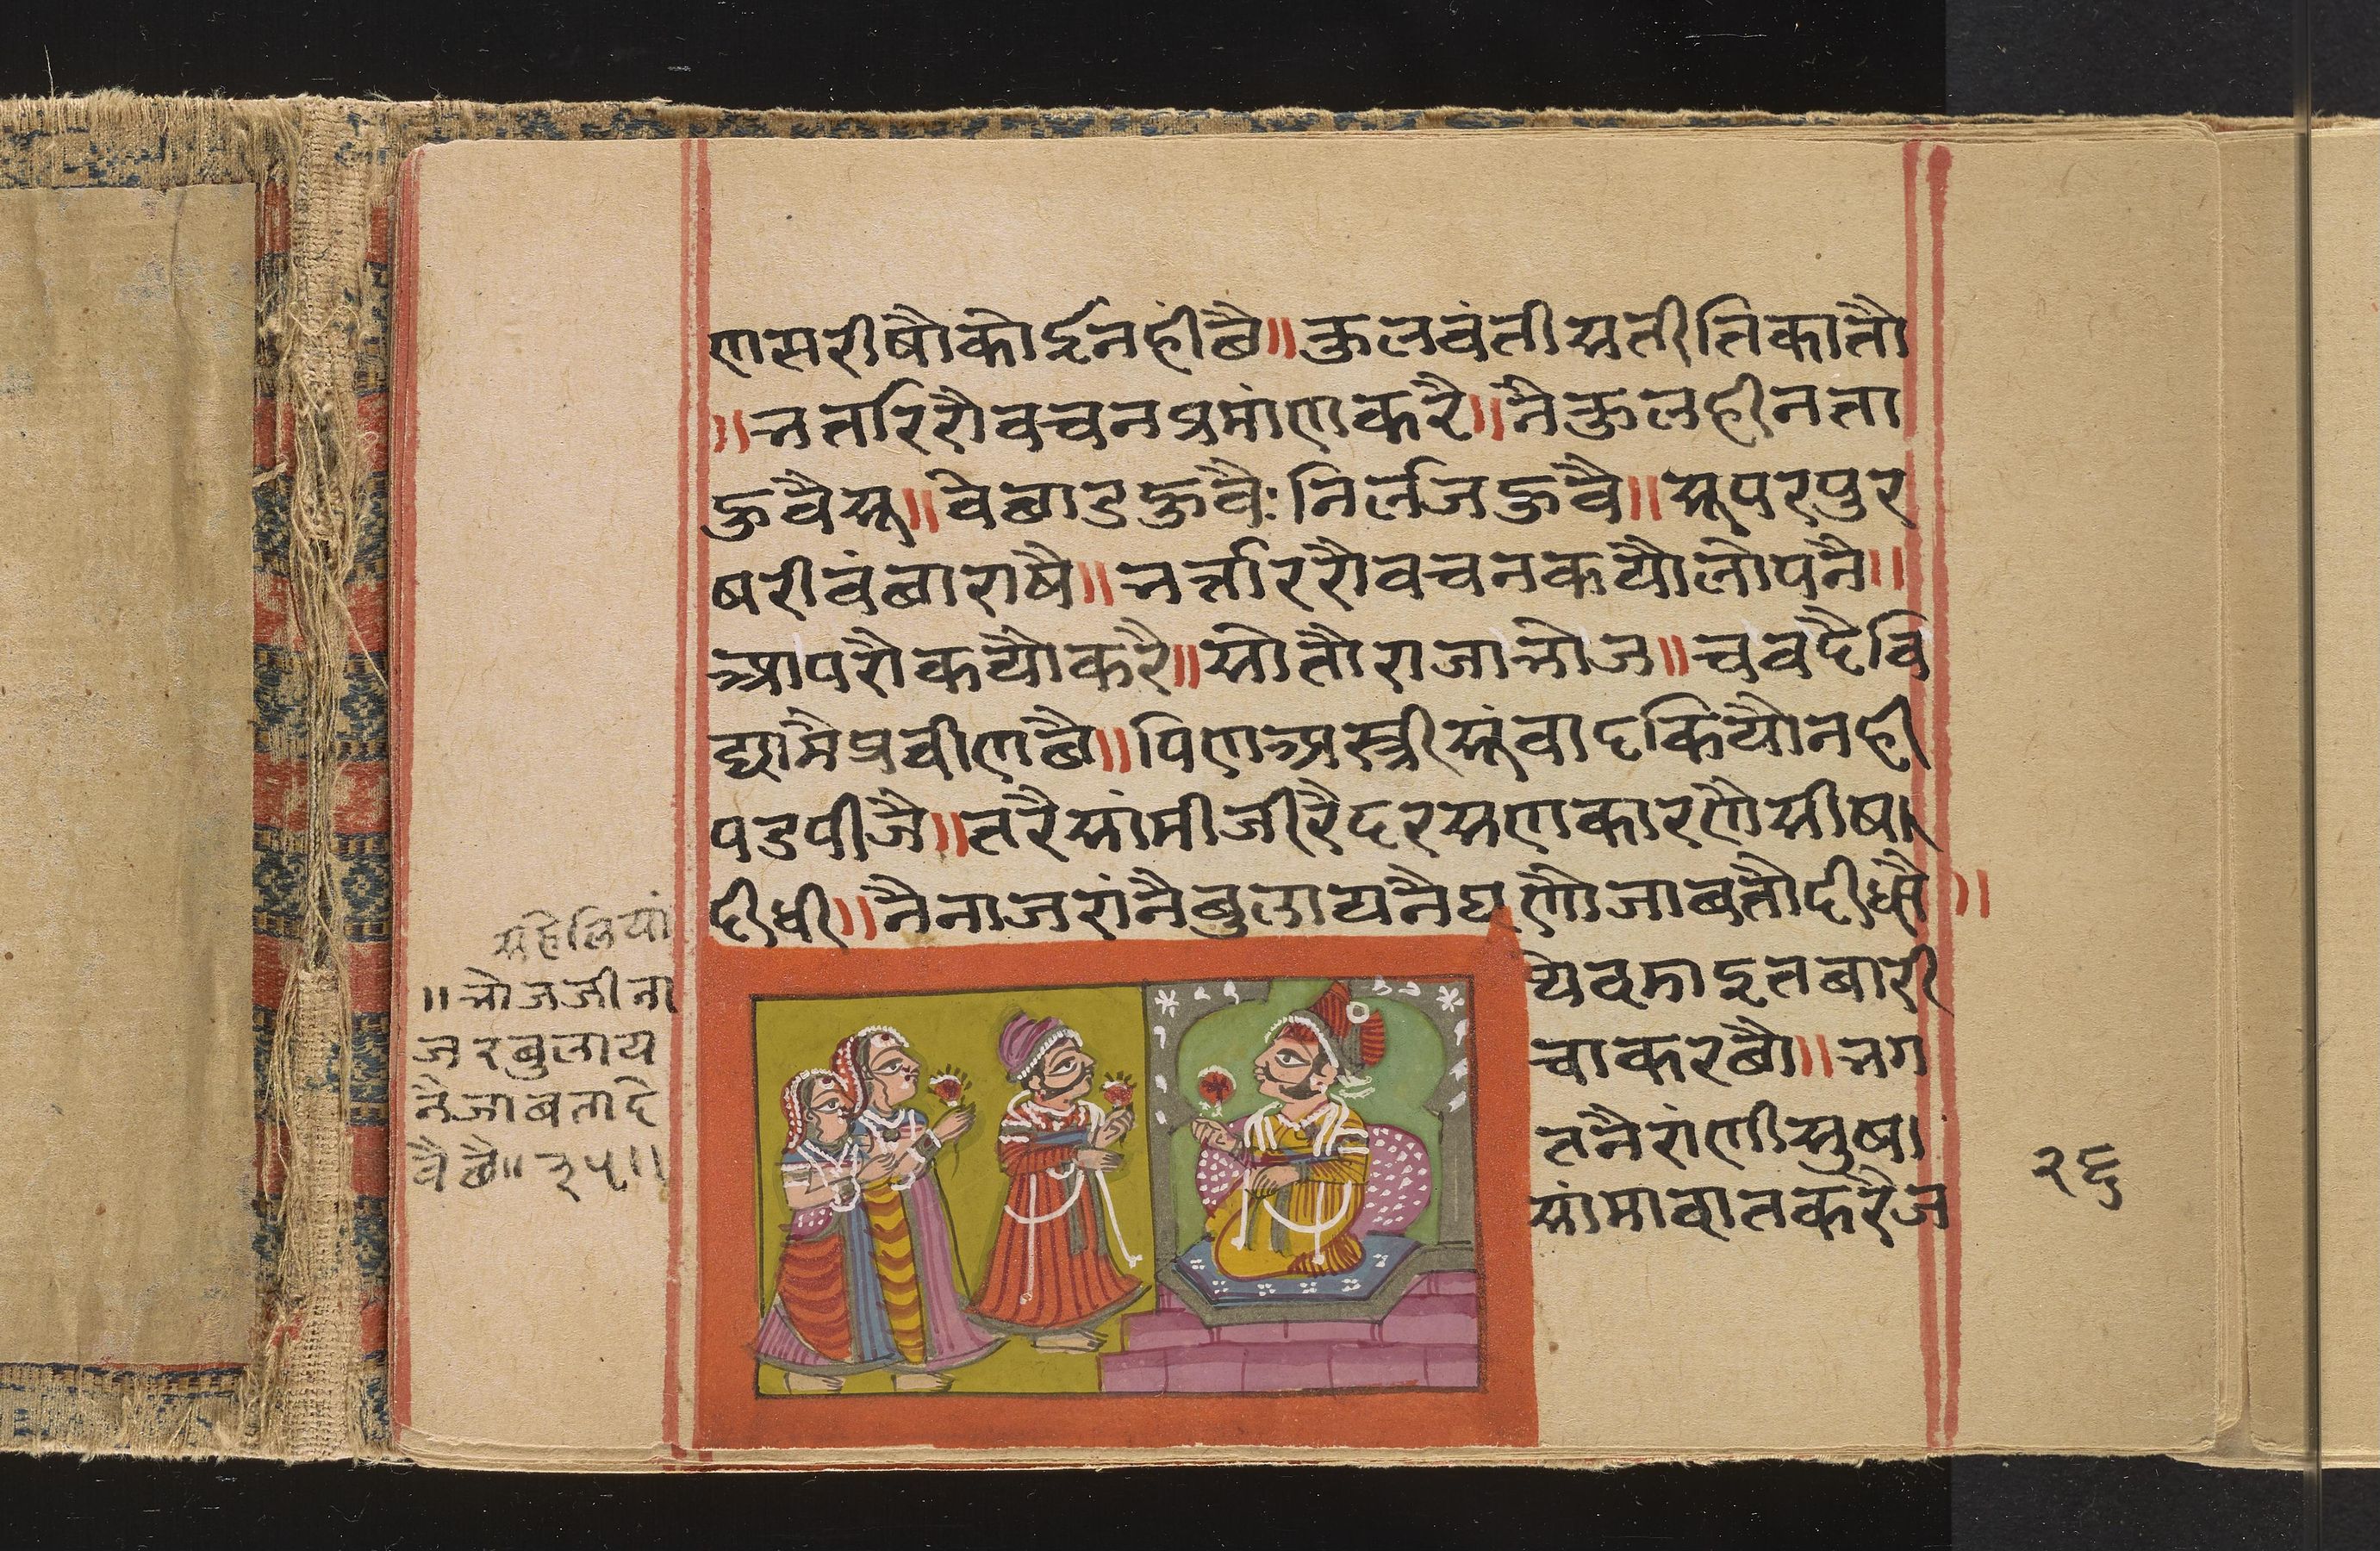 णसरीषौकोईनहींछै॥कुलवंतीसतीतिकातौ
॥भर्तारिरौवचनप्रमांणकरै॥नैकुलहीनता
हुवैसू॥वेछाडहुवैः निर्लजहुवै॥सूपरपुर
षरीवंछाराषै॥भर्त्ताररौवचनकयौलोपनै॥
आपरौकयौकरै॥सोतौराजाभोज॥चवदैवि
द्यामैप्रवीणछै॥पिणअस्त्रीसूंवादकियौनही
पडपीजै॥तरैसांमीजीरैदरसणकारणैसीष
दीधी॥नैनाजरांनैबुलायनैघणौजाबतौदीधौ॥
येवमाइतबारी
चाकरछौ॥भग
तनैरांणीसुषा
सांमावातकरैज
सहेलियां
॥भोजजीना
जरबुलाय
नैजाबतादे
वैछै॥२५॥
२६